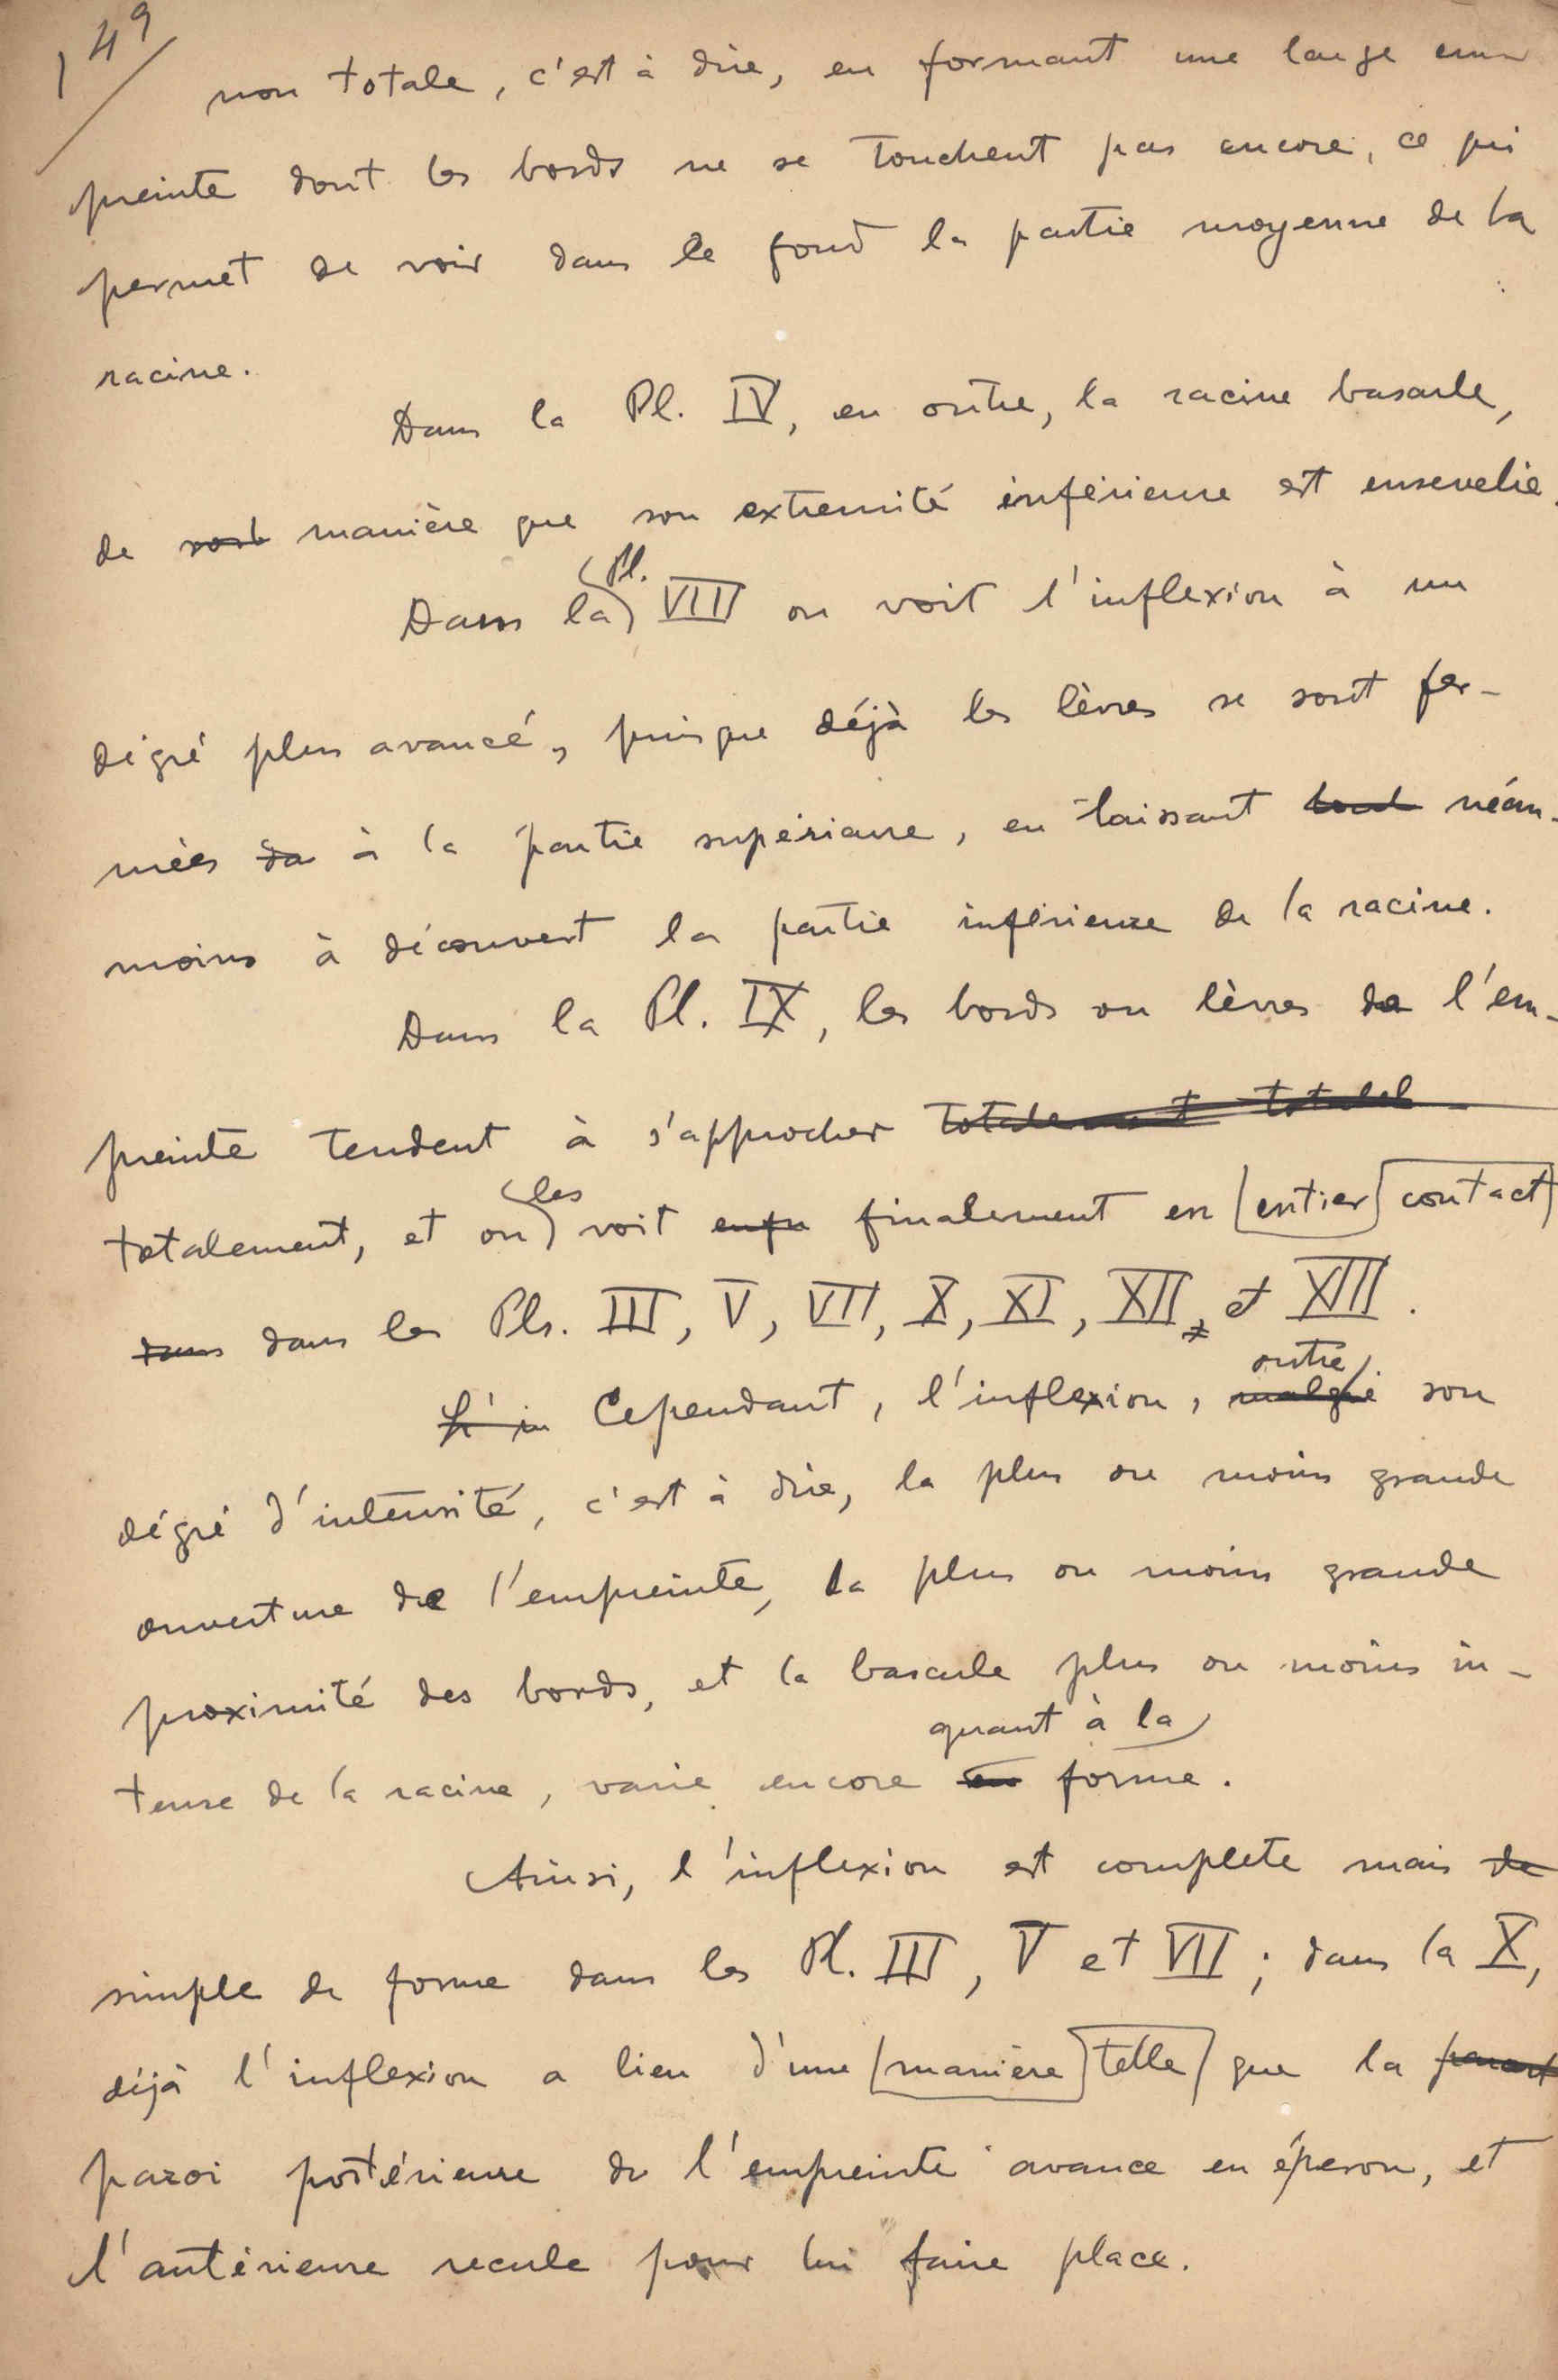 149
non totale, c'est à dire, en formant une large em
preinte dont les bords ne se touchent pas encore, ce qui
permet de voir dans le fond la partie moyenne de la
racine.
Dans la Pl. IV, en outre, la racine bascule,
de manière que son extremité inférieure est ensevelie.
Pl.
Dans la VIII on voit l'inflexion à un
dégré plus avancé, puisque déjà les lèvres se sont fer-
mées da à la partie supérieure, en laissant néan-
moins à découvert la partie inférieure de la racine.
Dans la Pl. IX, les bords ou lèvres de l'em-
preinte tendent à s'approcher totalement
les
totalement, et on voit enfin finalement en entier contact
dans dans les Pls. III, V, VII, X, XI, XII, et XIII.
outre
L'in Cependant, l'inflexion, malgré son
dégré d'intensité, c'est à dire, la plus ou moins grande
ouverture de l'empreinte, la plus ou moins grande
proximité des bords, et la bascule plus ou moins in-
quant à la
tense de la racine, varie encore en forme.
Ainsi, l'inflexion est complete mais de
simple de forme dans les Pl. III, V et VII; dans la X,
déjà l'inflexion a lieu d'une manière telle que la
paroi postérieure de l'empreinte avance en éperon, et
l'antérieure recule pour lui faire place.